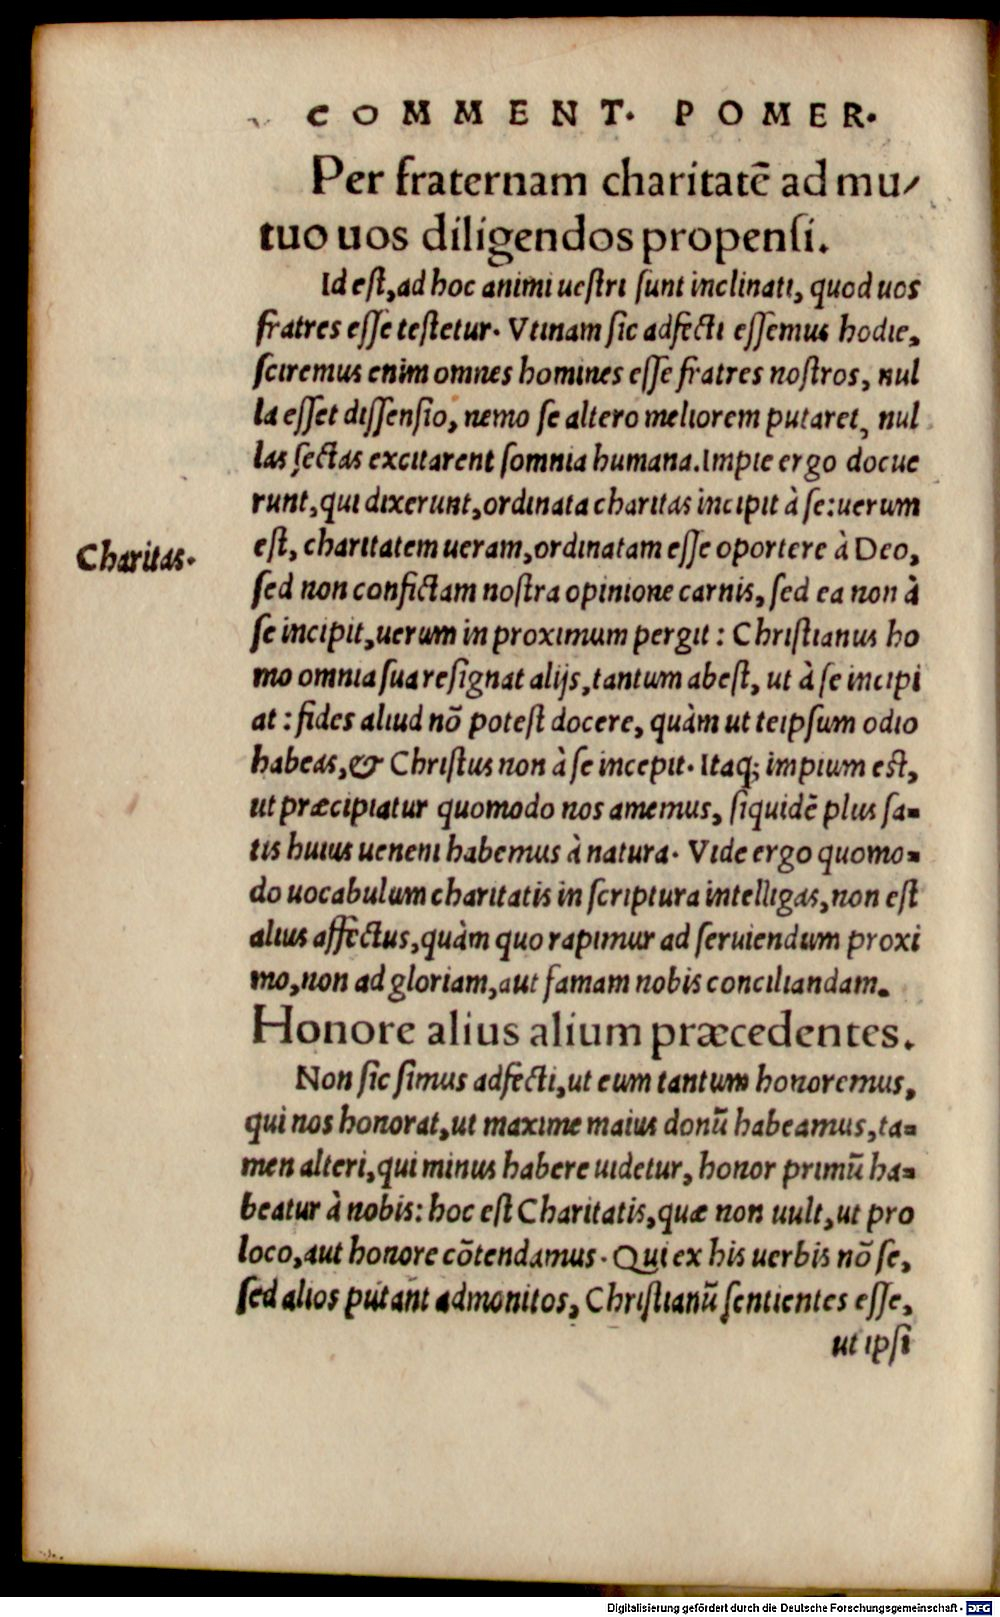 COMMENT. POMER.
Per fraternam charitatē ad mu⸗
tuo uos diligendos propenſi.
Id eſt, ad hoc animi ueſtri ſunt inclinati, quod uos
fratres eſſe teſtetur. Vtinam ſic adfecti eſſemus hodie,
ſciremus enim omnes homines eſſe fratres noſtros, nul
la eſſet diſſenſio, nemo ſe altero meliorem putaret, nul
las ſectas excitarent ſomnia humana. Impie ergo docue
runt, qui dixerunt, ordinata charitas incipit à ſe: uerum
Charitas.
eſt, charitatem ueram, ordinatam eſſe oportere à Deo,
ſed non confictam noſtra opinione carnis, ſed ea non à
ſe incipit, uerum in proximum pergit: Chriſtianus ho
mo omnia ſua reſignat alijs, tantum abeſt, ut à ſe incipi
at: fides aliud nō poteſt docere, quàm ut teipſum odio
habeas, & Chriſtus non à ſe incepit. Itaq; impium eſt,
ut præcipiatur quomodo nos amemus, ſiquidē plus ſa⸗
tis huius ueneni habemus à natura. Vide ergo quomo⸗
do uocabulum charitatis in ſcriptura intelligas, non eſt
alius affectus, quàm quo rapimur ad ſeruiendum proxi
mo, non ad gloriam, aut famam nobis conciliandam.
Honore alius alium præcedentes.
Non ſic ſimus adfecti, ut eum tantum honoremus,
qui nos honorat, ut maxime maius donū habeamus, ta⸗
men alteri, qui minus habere uidetur, honor primū ha⸗
beatur à nobis: hoc eſt Charitatis, quæ non uult, ut pro
loco, aut honore cōtendamus. Qui ex his uerbis nō ſe,
ſed alios putant admonitos, Chriſtianū ſentientes eſſe,
ut ipſi
Digitalisierung gefördert durch die Deutsche Forschungsgemeinschaft - DFG